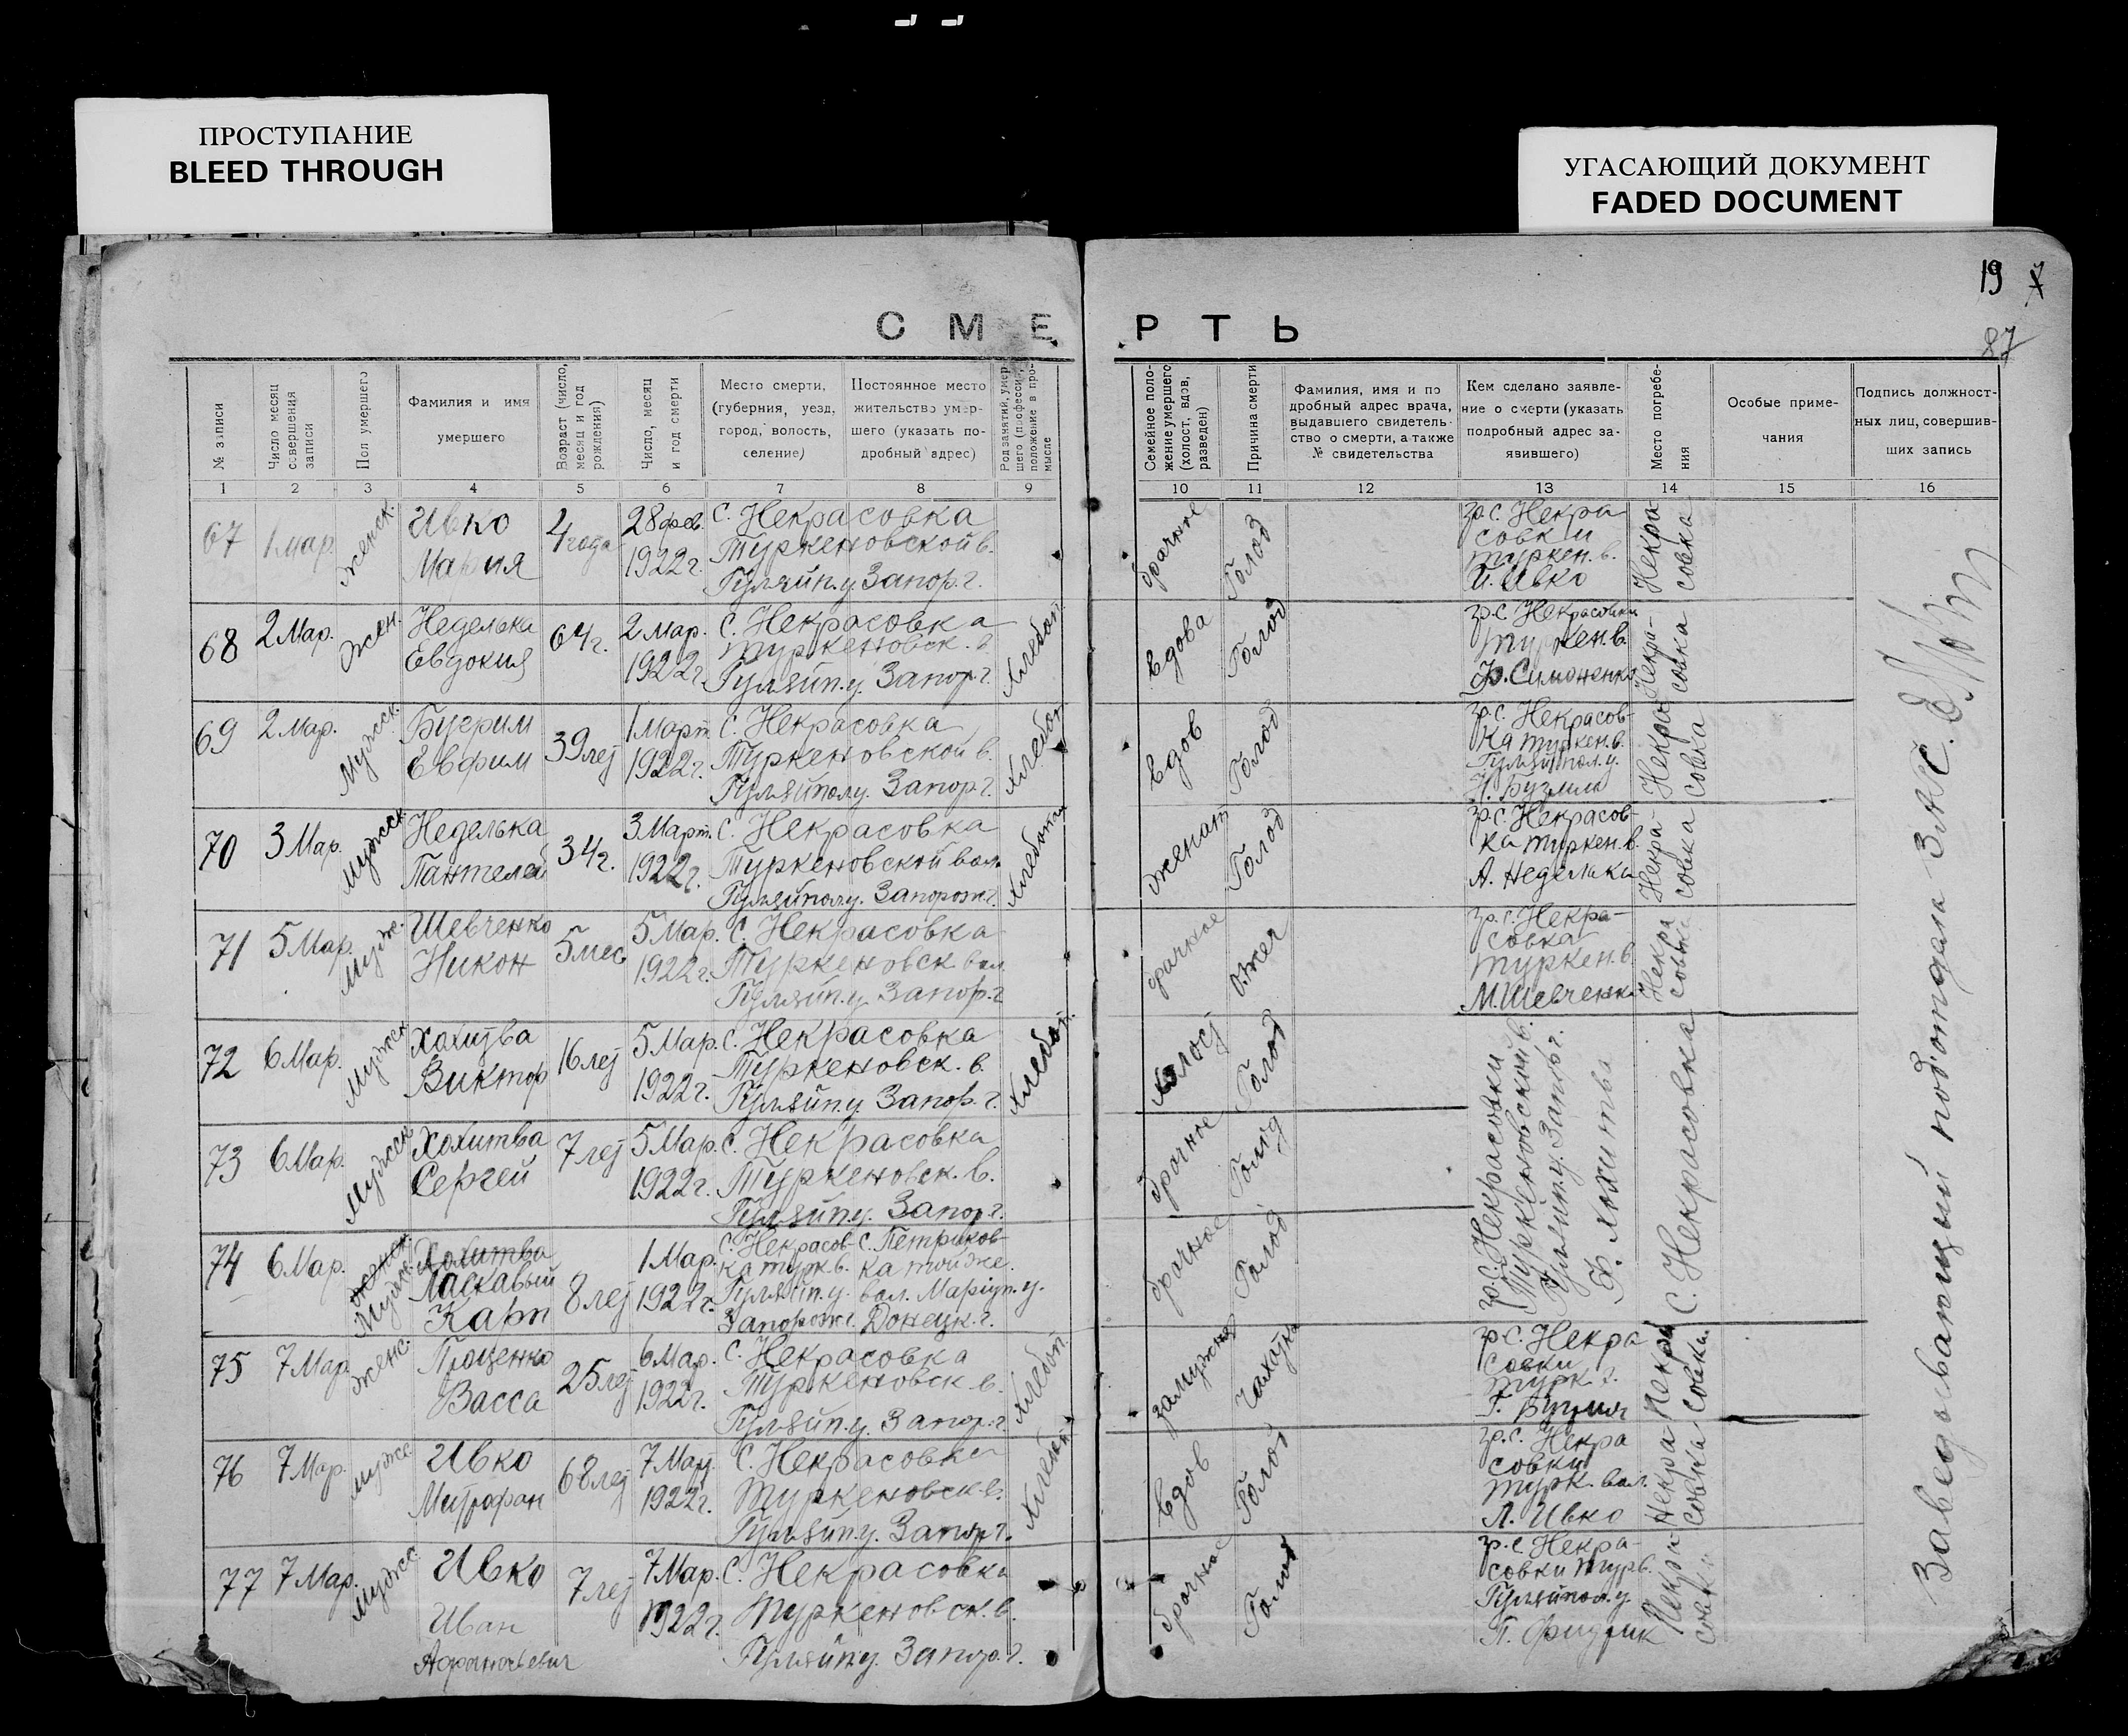 ПРОСТУПАНИЕ
BLEED THROUGH
УГАСАЮЩИЙ ДОКУМЕНТ
FADED DOCUMENT
19 7
87
СМЕРТЬ
№ записи
Число месяц совершения записи
Пол умершего
Фамилия и имя умершего
Возраст (число, месяц и год рождения)
Число, месяц и год смерти
Место смерти, (губерния, уезд, город, волость, селение)
Постоянное место жительство умершего (указать подробный адрес)
Род занятий умершего (профессия, положение в промысле
Семейное положение умершего (холост, вдов, разведен)
Причина смерти
Фамилия, имя и подробный адрес врача, выдавшего свидетельство о смерти, а также № свидетельства
Кем сделано заявление о смерти (указать подробный адрес заявившего)
Место погребения
Особые примечания
Подпись должностных лиц, совершивших запись
1 2 3 4 5 6 7 8 9 10 11 12 13 14 15 16
67 1 Мар. Женск. Ивко Мария 4 года 28 фев. 1922 г. С. Некрасовка Туркеновской в. Гуляйп. у. Запор. г.
брачное Голод гр. с. Некрасовки Туркен. в. И. Ивко Некрасовка
68 2 Мар. Жен. Неделька Евдокия 64 г. 2 Мар. 1922 г. С. Некрасовка Туркеновск. в. Гуляйп. у. Запор. г. Хлебоп.
вдова Голод гр. с. Некрасовки Туркен. в. Ф. Симоненко Некрасовка
69 2 Мар. Мужск. Евфим 39 лет 1 Март. 1922 г. С. Некрасовка Туркеновской в. Гуляйпол. у. Запор. г. Хлебоп.
вдов Голод гр. с. Некрасовка Туркен. в. Гуляйпол. у. Некрасовка
70 3 Мар. Мужск. Неделька Пантелей 34 г. 3 Март. 1922 г. С. Некрасовка Туркеновской вол. Гуляйпол. у. Запорож. г. Хлебопаш
женат Голод гр. с. Некрасовка Туркен. в. А. Неделька Некрасовка
71 5 Мар. Мужс. Шевченко Никон 5 мес 5 Мар. 1922 г. С. Некрасовка Туркеновск. вол. Гуляйп. у. Запор. г.
брачное гр. с. Некрасовка Туркен. в. М. Шевченко Некрасовка
72 6 Мар. Мужск Хохитва Виктор 16 лет 5 Мар. 1922 г. С. Некрасовка Туркеновск. в. Гуляйп. у. Запор. г. Хлебоп.
холост Голод
73 6 Мар. Мужск Хохитва Сергей 7 лет 5 Мар. 1922 г. С. Некрасовка Туркеновск. в. Гуляйп. у. Запор. г.
брачное Голод
гр. с. Некрасовки Туркеновской в. Гуляйп. у. Запор. г. Ф. Хохитва С. Некрасовка
74 6 Мар. Мужс. Хохитва Ласкавый Карп 8 лет 1 Мар. 1922 г. С. Некрасовка турк. в. Гуляйп. у. Запорож. г. С. Петриковка вол. Маріуп. у. Донецк. г.
брачное Голод
75 7 Мар. Женс. Проценко Васса 25 лет 6 Мар. 1922 г. С. Некрасовка Туркеновск в. Гуляйп. у. Запор. г. Хлебоп.
замужня гр с. Некрасовки Турк. Некрасовка
76 7 Мар. Мужс Ивко Митрофан 68 лет 7 Мар. 1922 г. С. Некрасовка Туркеновск в. Гуляйп. у. Запор. г. Хлебоп
вдов Голод гр. с. Некрасовки Турк. вол. Л. Ивко Некрасовка
77 7 Мар. Мужс. Ивко Иван Афанасьевич 7 лет 7 Мар. 1922 г. С. Некрасовка Туркеновск. в. Гуляйп. у. Запор. г.
брачное Голод гр. с. Некрасовки Тур в. Гуляйпол. у. П. Некрасовка
Заведывающий подотдела ЗАГС.